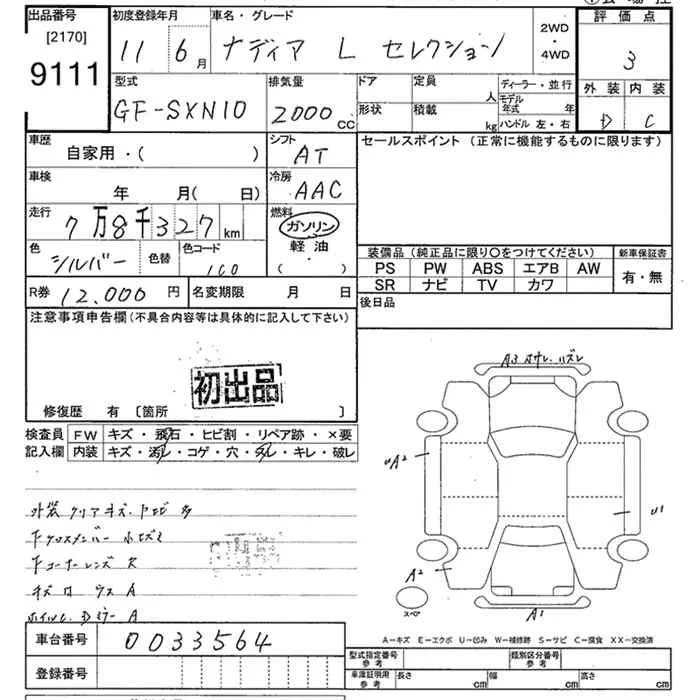 出品番号 初度登録年月 車名・グレード 評価点
[2170]
9111 11 6月 ナディア L セレクション 2WD・4WD 3
型式 排気量 ドア 定員 人 ディーラー・並行 外装 内装
GF-SXN10 2000cc 形状 積載 kg モデル年式 年 D C
ハンドル 左・右
車歴 自家用・( ) シフト AT セールスポイント (正常に機能するものに限ります)
車検 年 月( 日) 冷房 AAC
走行 7万8千327km 燃料 ガソリン
軽油
( )
色 シルバー 色替 色コード 1C0
装備品(純正品に限り○をつけてください) 新車保証書
PS PW ABS エアB AW 有・無
SR ナビ TV カワ
R券 12,000円 名変期限 月 日 後日品
注意事項申告欄(不具合内容等は具体的に記入して下さい)
初出品
修復歴 有 〔箇所 〕
検査員 FW キズ・飛石・ヒビ割・リペア跡・×要
記入欄 内装 キズ・汚レ・コゲ・穴・スレ・キレ・破レ
A3
A2
U1
A2
スペア
A1
外装 クリア キズ
A
A
A-キズ E-エクボ U-凹み W-補修跡 S-サビ C-腐食 XX-交換済
車台番号 0033564
登録番号
型式指定番号 参考 類別区分番号 参考
車庫証明用 参考 長さ cm 幅 cm 高さ cm